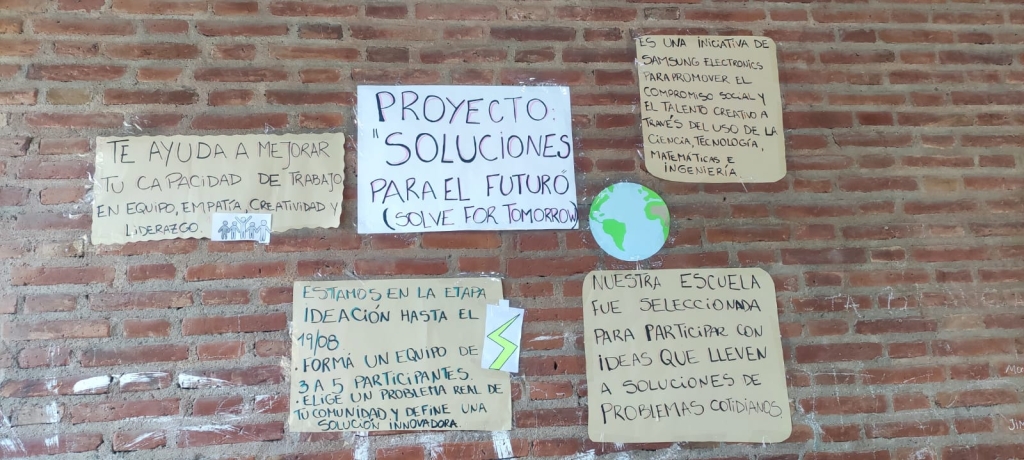 PROYECTO:
"SOLUCIONES
PARA EL FUTURO"
(SOLVE FOR TOMORROW)
TE AYUDA A MEJORAR
TU CAPACIDAD DE TRABAJO
EN EQUIPO, EMPATÍA, CREATIVIDAD Y
LIDERAZGO.
ES UNA INICIATIVA DE
SAMSUNG ELECTRONICS
PARA PROMOVER EL
COMPROMISO SOCIAL Y
EL TALENTO CREATIVO A
TRAVÉS DEL USO DE LA
CIENCIA, TECNOLOGÍA,
MATEMÁTICAS E
INGENIERÍA.
ESTAMOS EN LA ETAPA
IDEACIÓN HASTA EL
19/08
· FORMÁ UN EQUIPO DE
3 A 5 PARTICIPANTES.
· ELIGE UN PROBLEMA REAL DE
TU COMUNIDAD Y DEFINE UNA
SOLUCIÓN INNOVADORA.
NUESTRA ESCUELA
FUE SELECCIONADA
PARA PARTICIPAR CON
IDEAS QUE LLEVEN
A SOLUCIONES DE
PROBLEMAS COTIDIANOS